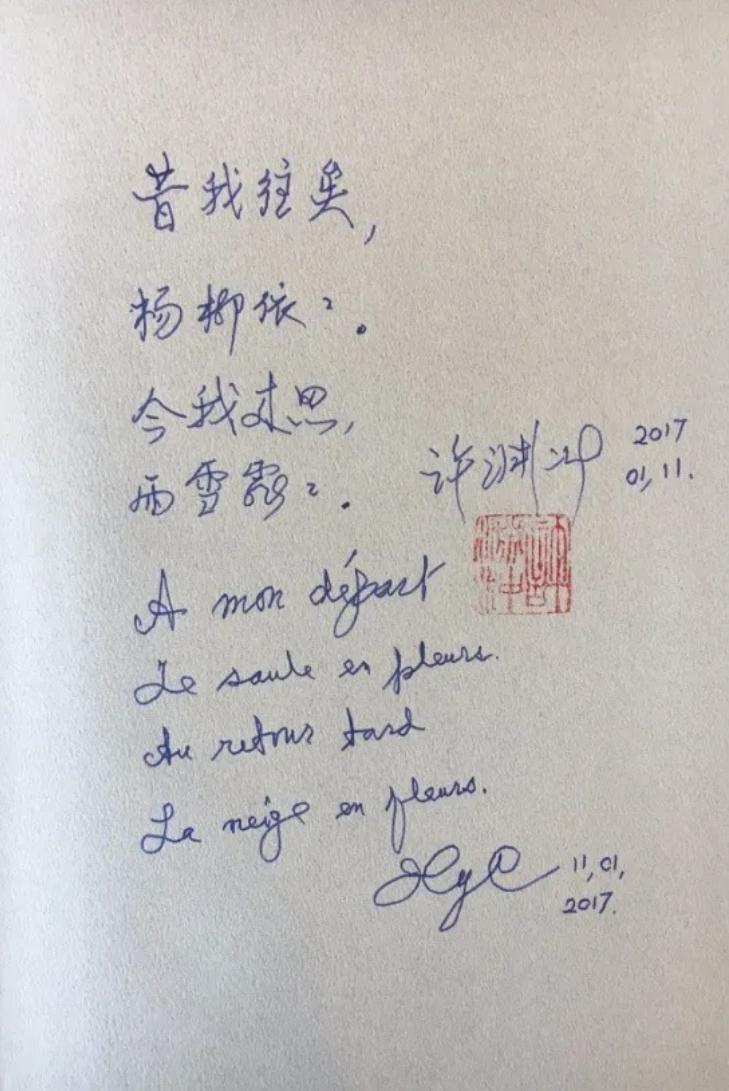 昔我往矣，
杨柳依々。
今我来思，
雨雪霏々。
许渊冲 2017
01,11.
A mon départ
Le saule en pleurs.
Au retour tard
La neige en fleurs.
XYC 11,01,
2017.